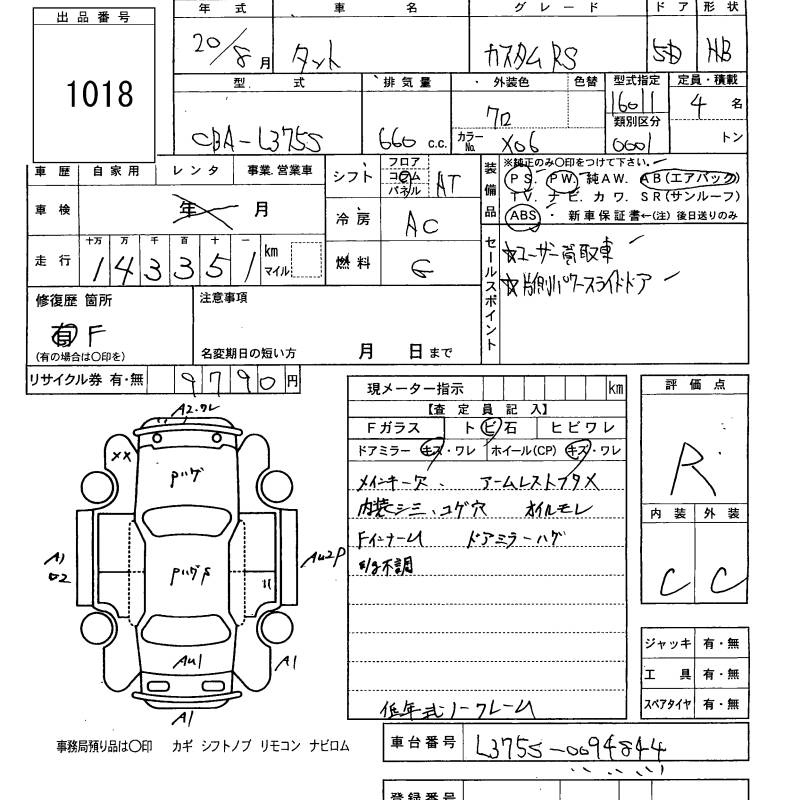 出品番号
1018
年式 車名 グレード ドア 形状
20/8月 タント カスタムRS 5D HB
型式 排気量 外装色 色替 型式指定 定員・積載
CBA-L375S 660 c.c. クロ 16011 4名
類別区分
カラーNo. X06 0001 トン
車歴 自家用 レンタ 事業.営業車
シフト フロア コラム パネル AT
装備品
※純正のみ〇印をつけて下さい。
PS. PW. 純AW. AB(エアバック)
TV. ナビ. カワ. SR(サンルーフ)
ABS・新車保証書←(注)後日送りのみ
車検 年 月
冷房 AC
走行 十万 万 千 百 十 一 km マイル
143351
燃料 G
セールスポイント
☆ユーザー買取車
☆片側パワースライドドア
修復歴 箇所
有 F
(有の場合は〇印を)
注意事項
名変期日の短い方 月 日まで
リサイクル券 有・無 9790円
現メーター指示 km
【査定員記入】
Fガラス トビ石 ヒビワレ
ドアミラー キズ・ワレ ホイール(CP) キズ・ワレ
メインキー欠、アームレストフタメ
内装シミ、コゲ穴 オイルモレ
Fインナーム ドアミラーハゲ
不調
低年式ノークレーム
評価点
R
内装 外装
C C
A2.ワレ
XX
Pハゲ
Pハゲ
A1
AU2P
AU1
A1
A1
ジャッキ 有・無
工具 有・無
スペアタイヤ 有・無
事務局預り品は〇印 カギ シフトノブ リモコン ナビロム
車台番号 L375S-0094844
登録番号